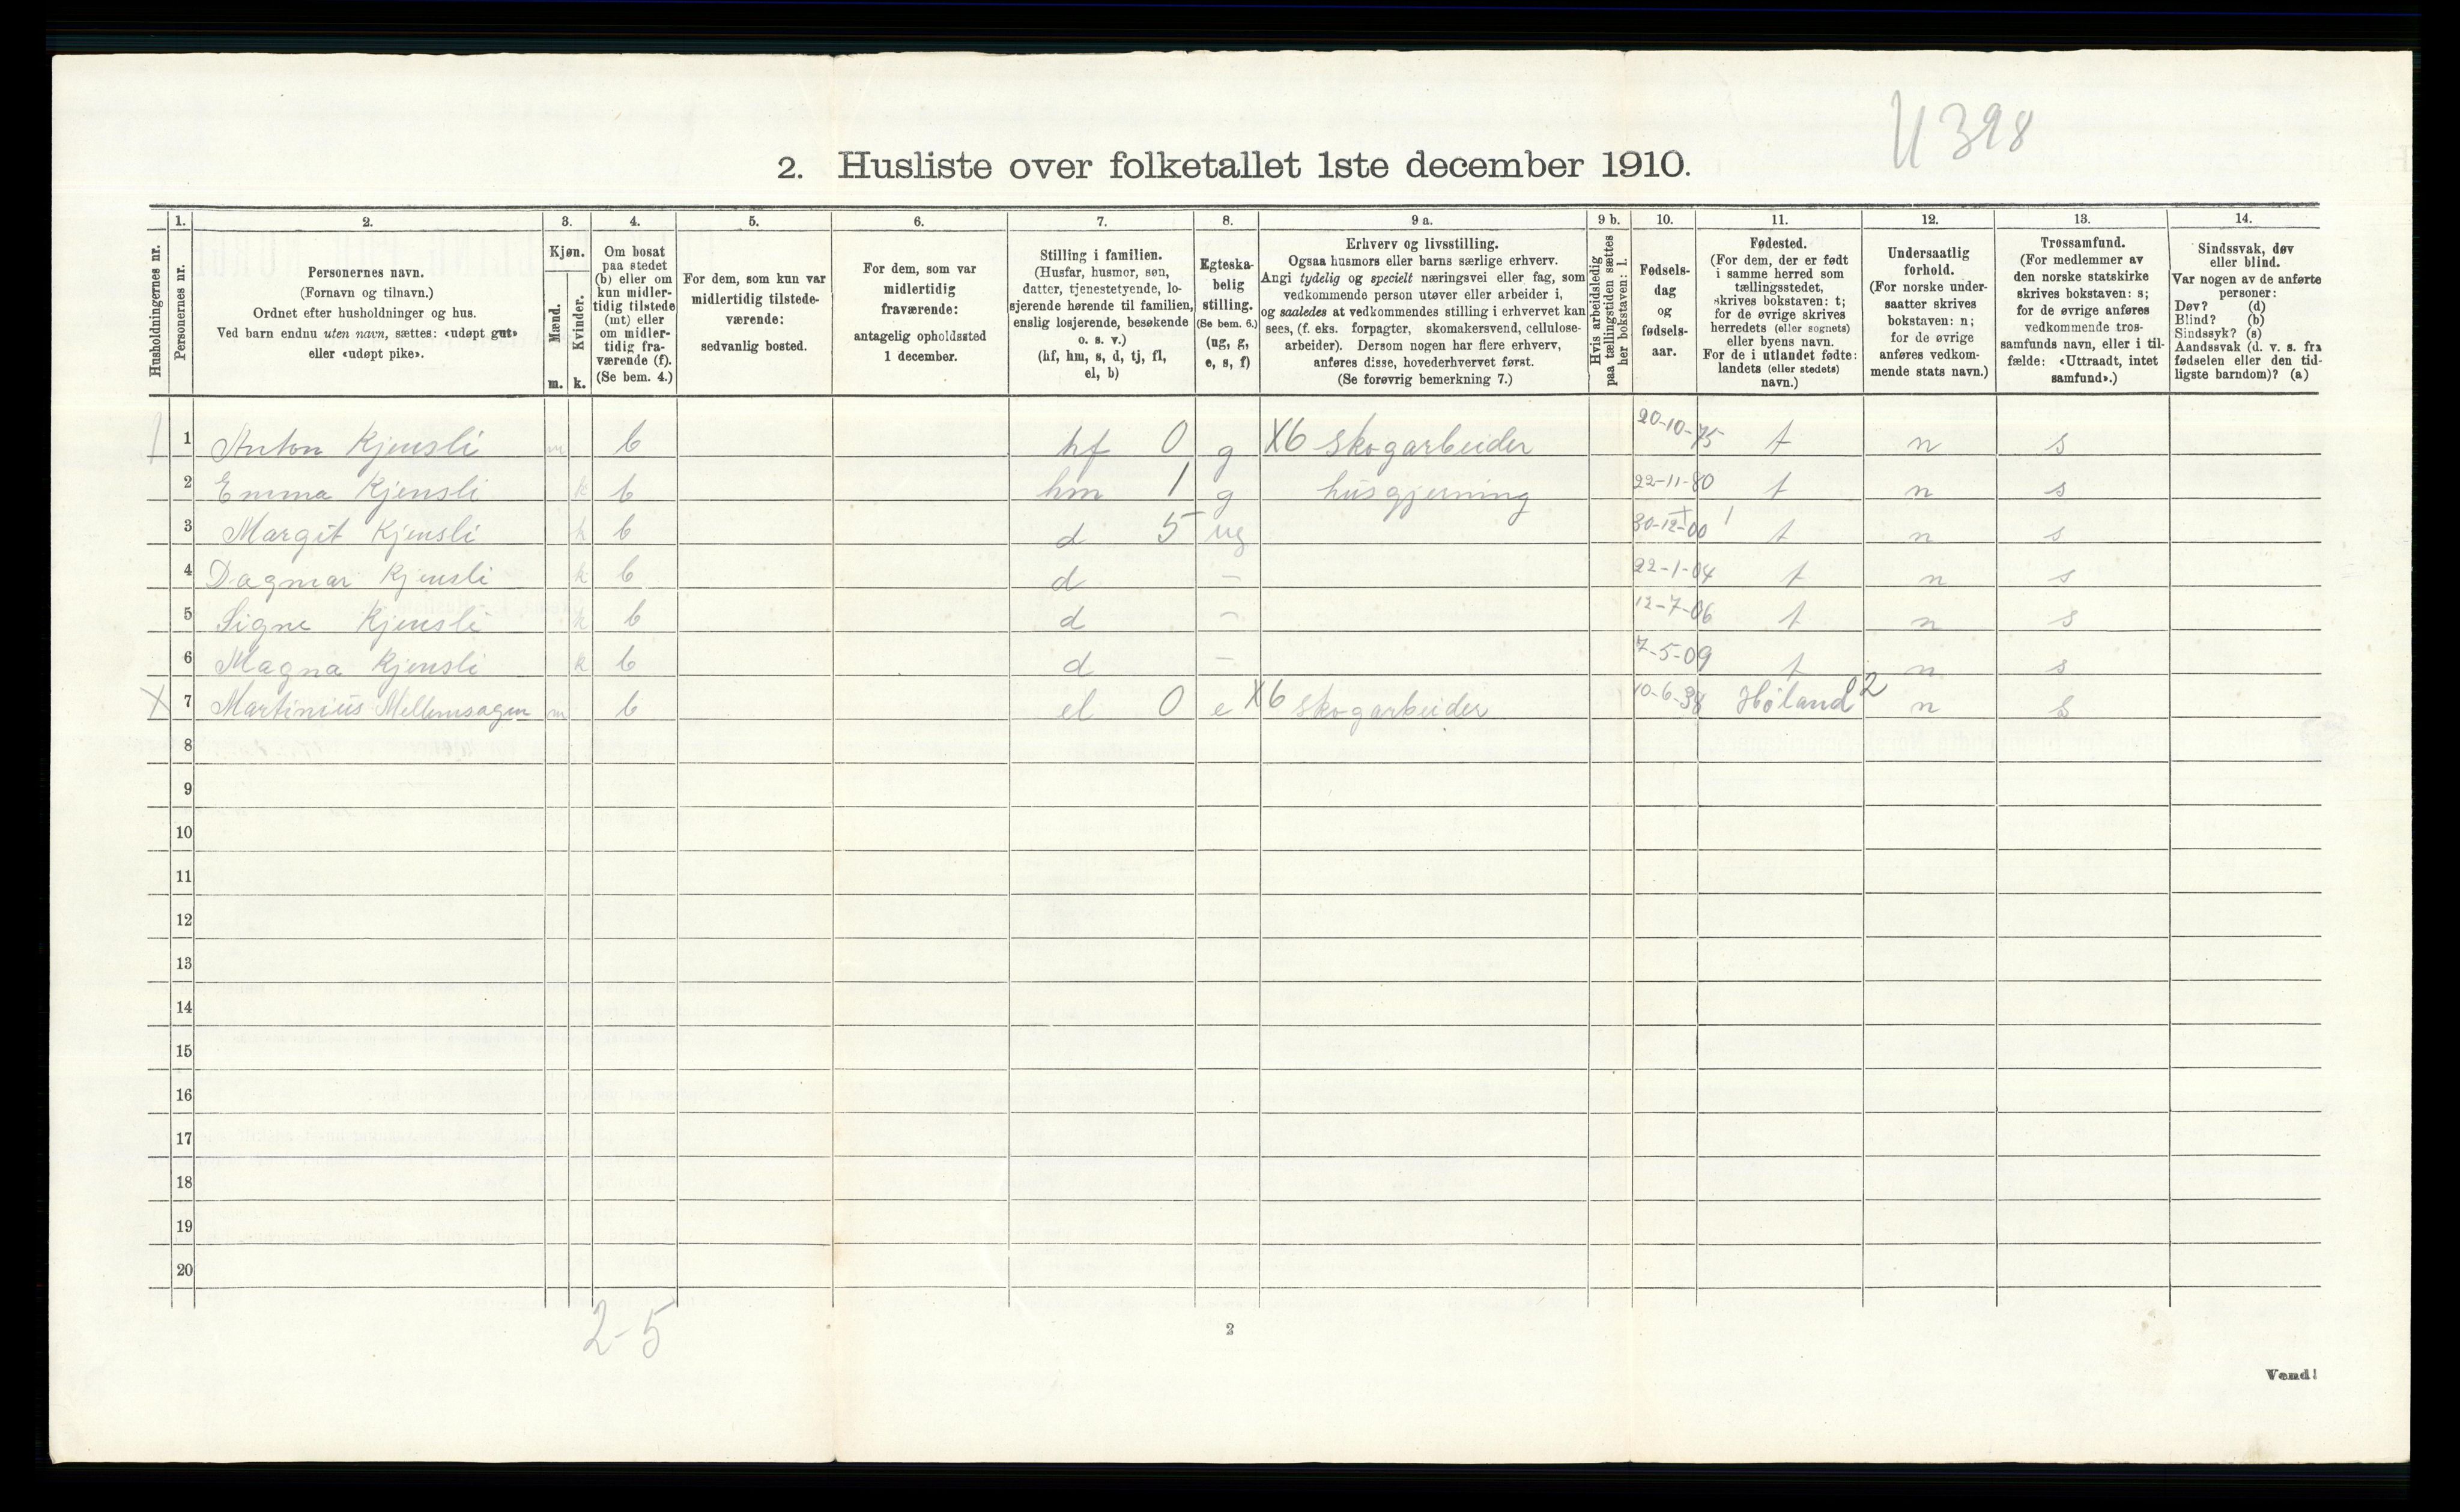 U 398
2. Husliste over folketallet 1ste december 1910.
Husholdningernes nr.
1.
Personernes nr.
2.
Personernes navn.
(Fornavn og tilnavn.)
Ordnet efter husholdninger og hus.
Ved barn endnu uten navn, sættes: «udøpt gut»
eller «udøpt pike».
3.
Kjøn.
Mænd.
m.
Kvinder.
k.
4.
Om bosat
paa stedet
(b) eller om
kun midler-
tidig tilstede
(mt) eller
om midler-
tidig fra-
værende (f).
(Se bem. 4.)
5.
For dem, som kun var
midlertidig tilstede-
værende:
sedvanlig bosted.
6.
For dem, som var
midlertidig
fraværende:
antagelig opholdssted
1 december.
7.
Stilling i familien.
(Husfar, husmor, søn,
datter, tjenestetyende, lo-
sjerende hørende til familien,
enslig losjerende, besøkende
o. s. v.)
(hf, hm, s, d, tj, fl,
el, b)
8.
Egteska-
belig
stilling.
(Se bem. 6.)
(ug, g,
e, s, f)
9 a.
Erhverv og livsstilling.
Ogsaa husmors eller barns særlige erhverv.
Angi tydelig og specielt næringsvei eller fag, som
vedkommende person utøver eller arbeider i,
og saaledes at vedkommendes stilling i erhvervet kan
sees, (f. eks. forpagter, skomakersvend, cellulose-
arbeider). Dersom nogen har flere erhverv,
anføres disse, hovederhvervet først.
(Se forøvrig bemerkning 7.)
9 b.
Hvis arbeidsledig
paa tællingstiden sættes
her bokstaven: l.
10.
Fødsels-
dag
og
fødsels-
aar.
11.
Fødested.
(For dem, der er født
i samme herred som
tællingsstedet,
skrives bokstaven: t;
for de øvrige skrives
herredets (eller sognets)
eller byens navn.
For de i utlandet fødte:
landets (eller stedets)
navn.)
12.
Undersaatlig
forhold.
(For norske under-
saatter skrives
bokstaven: n;
for de øvrige
anføres vedkom-
mende stats navn.)
13.
Trossamfund.
(For medlemmer av
den norske statskirke
skrives bokstaven: s;
for de øvrige anføres
vedkommende tros-
samfunds navn, eller i til-
fælde: «Uttraadt, intet
samfund».)
14.
Sindssvak, døv
eller blind.
Var nogen av de anførte
personer:
Døv? (d)
Blind? (b)
Sindssyk? (s)
Aandssvak (d. v. s. fra
fødselen eller den tid-
ligste barndom)? (a)
1 Anton Kjensli m b hf 0 g X6 skogarbeider 20-10-75 t n s
2 Emma Kjensli k b hm 1 g husgjerning 22-11-80 t n s
3 Margit Kjensli k b d 5 ug 30-12-00 1 t n s
4 Dagmar Kjensli k b d – 22-1-04 t n s
5 Signe Kjensli k b d – 12-7-06 t n s
6 Magna Kjensli k b d – 7-5-09 t n s
X 7 Martinius Mellemsagen m b el 0 e X6 skogarbeider 10-6-38 Høland n s
8
9
10
11
12
13
14
15
16
17
18
19
20
2-5
2
Vend!